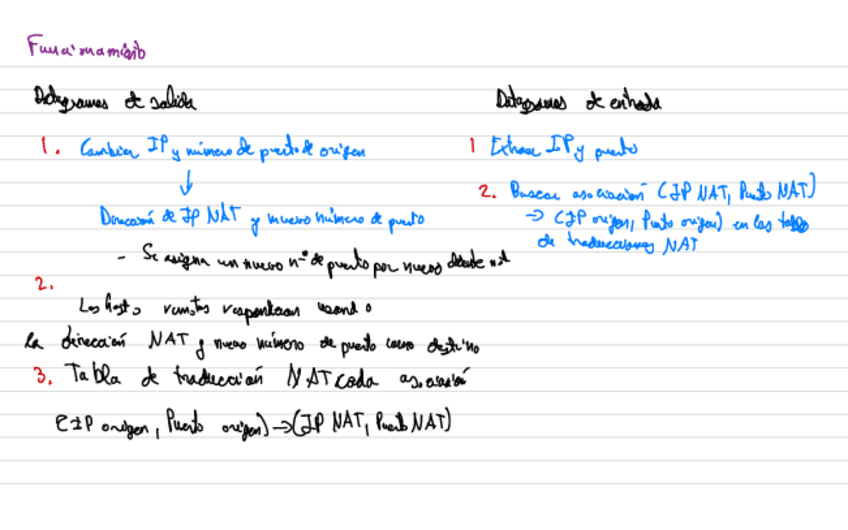 Funcionamiento
Datagramas de salida
1. Cambiar IP y número de puerto de origen
↓
Dirección de IP NAT y nuevo número de puerto
- Se asigna un nuevo nº de puerto por nuevo
2.
Los hosts remotos responderan usando
la dirección NAT y nuevo número de puerto como destino
3. Tabla de traducción NAT cada asociación
(IP origen, Puerto origen) → (IP NAT, Puerto NAT)
Datagramas de entrada
1 Extraer IP y puerto
2. Buscar asociación (IP NAT, Puerto NAT)
→ (IP origen, Puerto origen) en las tablas
de traducciones NAT